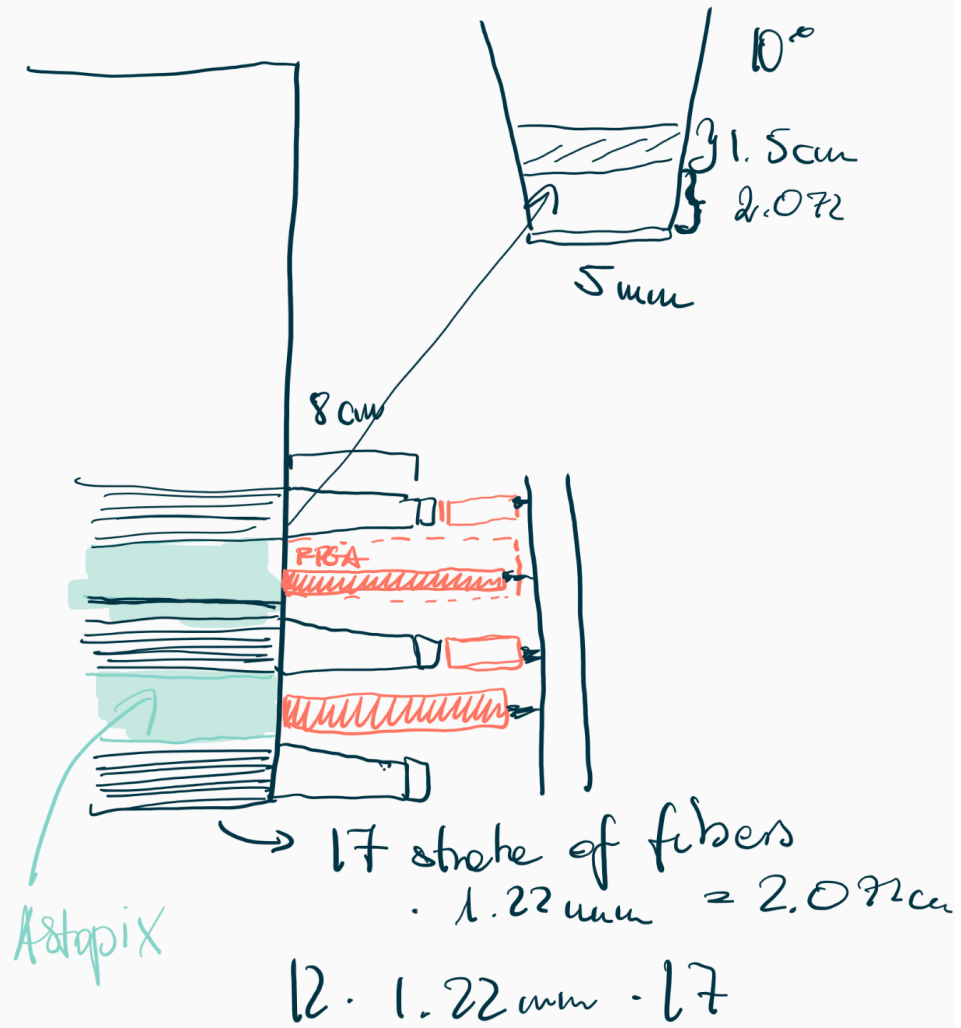 10°
} 1.5cm
} 2.072
5 mm
8 cm
FPGA
17 strate of fibers
· 1.22 mm = 2.072cm
Astopix
12 · 1.22 mm · 17